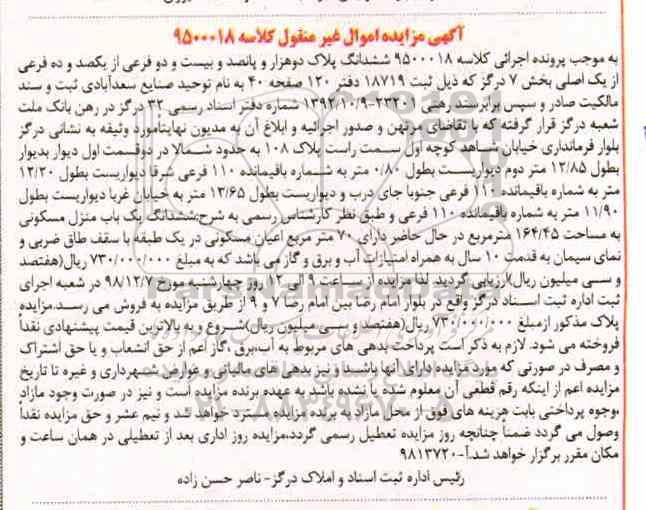 آگهی مزایده اموال غیر منقول کلاسه ۹۵۰۰۰۱۸
به موجب پرونده اجرائی کلاسه ۹۵۰۰۰۱۸ ششدانگ پلاک دوهزار و پانصد و بیست و دو فرعی از یکصد و ده فرعی
از یک اصلی بخش ۷ درگز که ذیل ثبت ۱۸۷۱۹ دفتر ۱۲۰ صفحه ۴۰ به نام توحید صنایع سعدآبادی ثبت و سند
مالکیت صادر و سپس برابرسند رهنی ۲۳۲۰۱-۱۳۹۲/۱۰/۹ شماره دفتر اسناد رسمی ۳۲ درگز در رهن بانک ملت
شعبه درگز قرار گرفته که با تقاضای مرتهن و صدور اجرائیه و ابلاغ آن به مدیون نهایتاًمورد وثیقه به نشانی درگز
بلوار فرمانداری خیابان شاهد کوچه اول سمت راست پلاک ۱۰۸ به حدود شمالا در دوقسمت اول دیوار بدیوار
بطول ۱۲/۸۵ متر دوم دیواریست بطول ۰/۸۰ متر به شماره باقیمانده ۱۱۰ فرعی شرقا دیواریست بطول ۱۲/۲۰
متر به شماره باقیمانده ۱۱۰ فرعی جنوبا جای درب و دیواریست بطول ۱۳/۶۵ متر به خیابان غربا دیواریست بطول
۱۱/۹۰ متر به شماره باقیمانده ۱۱۰ فرعی و طبق نظر کارشناس رسمی به شرح:ششدانگ یک باب منزل مسکونی
به مساحت ۱۶۴/۴۵ مترمربع در حال حاضر دارای ۷۰ متر مربع اعیان مسکونی در یک طبقه با سقف طاق ضربی و
نمای سیمان به قدمت ۱۰ سال به همراه امتیازات آب و برق و گاز می باشد که به مبلغ ۷۳۰/۰۰۰/۰۰۰ ریال(هفتصد
و سی میلیون ریال)ارزیابی گردید. لذا مزایده از ساعت ۹ الی ۱۲ روز چهارشنبه مورخ ۹۸/۱۲/۷ در شعبه اجرای
ثبت اداره ثبت اسناد درگز واقع در بلوار امام رضا بین امام رضا ۷ و ۹ از طریق مزایده به فروش می رسد.مزایده
پلاک مذکور ازمبلغ ۷۳۰/۰۰۰/۰۰۰ ریال(هفتصد و سی میلیون ریال)شروع و به بالاترین قیمت پیشنهادی نقداً
فروخته می شود. لازم به ذکر است پرداخت بدهی های مربوط به آب،برق ،گاز اعم از حق انشعاب و یا حق اشتراک
و مصرف در صورتی که مورد مزایده دارای آنها باشد و نیز بدهی های مالیاتی و عوارض شهرداری و غیره تا تاریخ
مزایده اعم از اینکه رقم قطعی آن معلوم شده یا نشده باشد به عهده برنده مزایده است و نیز در صورت وجود مازاد
،وجوه پرداختی بابت هزینه های فوق از محل مازاد به برنده مزایده مسترد خواهد شد و نیم عشر و حق مزایده نقداً
وصول می گردد ضمناً چنانچه روز مزایده تعطیل رسمی گردد،مزایده روز اداری بعد از تعطیلی در همان ساعت و
مکان مقرر برگزار خواهد شد.آ-۹۸۱۳۷۲۰
رئیس اداره ثبت اسناد و املاک درگز- ناصر حسن زاده